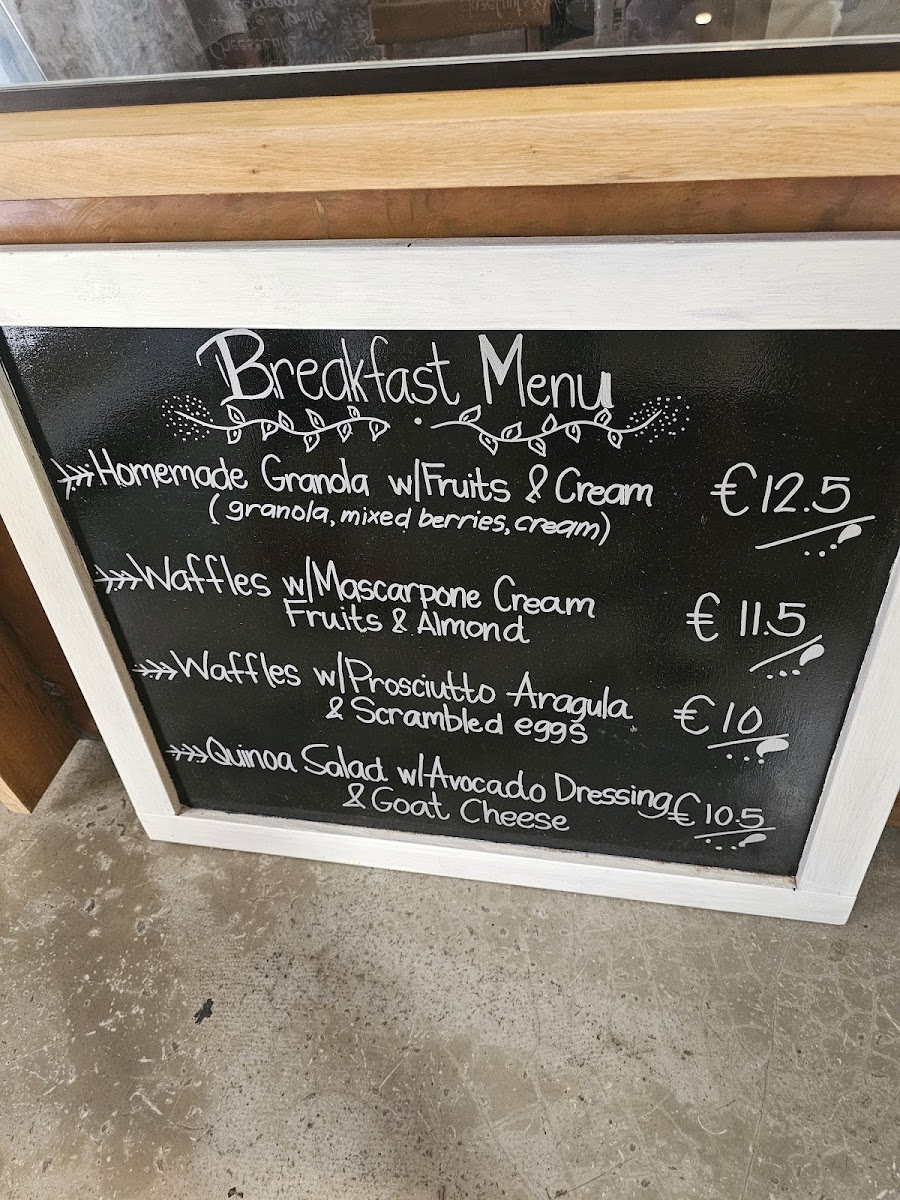 Breakfast Menu
Homemade Granola w/Fruits & Cream €12.5
(granola, mixed berries, cream)
Waffles w/Mascarpone Cream
Fruits & Almond €11.5
Waffles w/Prosciutto Aragula
& Scrambled eggs €10
Quinoa Salad w/Avocado Dressing €10.5
& Goat Cheese